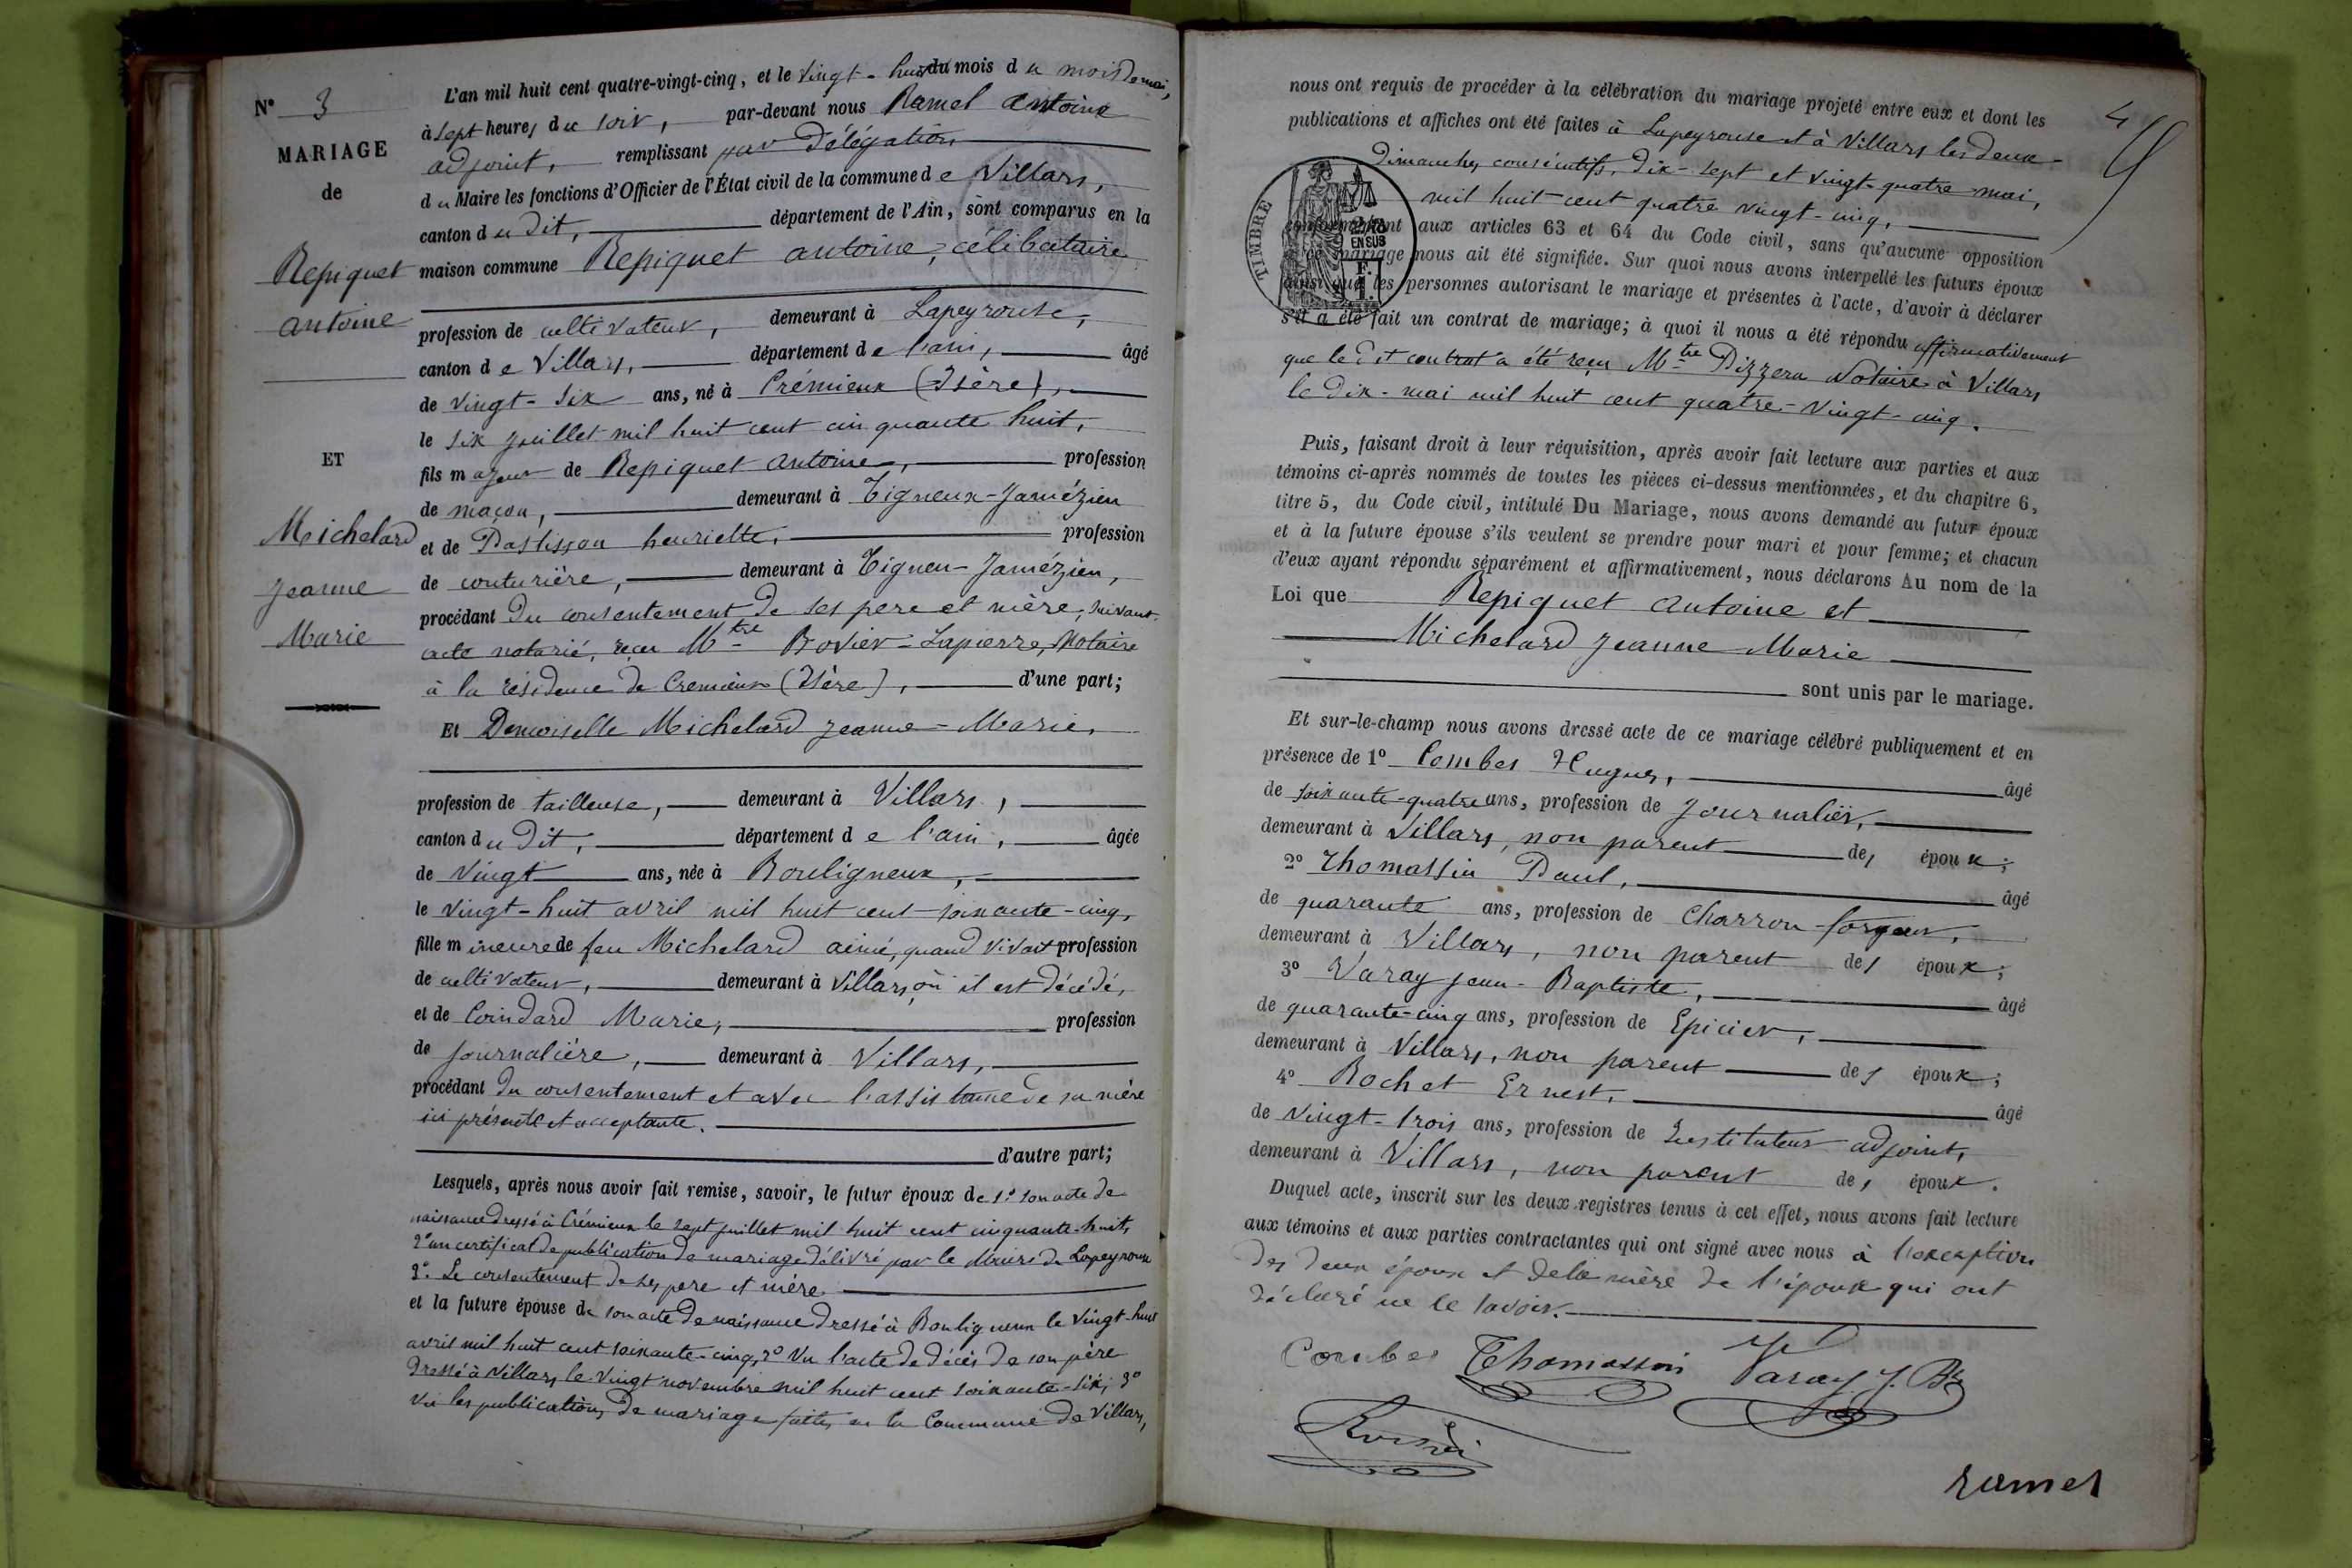 N° 3
MARIAGE
de
Repiquet
antoine
ET
Michelard
Jeanne
Marie
L'an mil huit cent quatre-vingt-cinq, et le vingt-huit du mois du mois de mai,
à sept heures du soir, par-devant nous Ramel antoine
adjoint, remplissant par délégation
du Maire les fonctions d'Officier de l'État civil de la commune de Villars,
canton du dit, département de l'Ain, sont comparus en la
maison commune Repiquet antoine, célibataire
profession de cultivateur, demeurant à Lapeyrouse,
canton de Villars, département de l'ain, âgé
de vingt-six ans, né à Crémieux (Isère),
le six juillet mil huit cent cinquante huit,
fils majeur de Repiquet antoine, profession
de maçon, demeurant à Tigneux-Jamézien
et de Pastissou henriette, profession
de couturière, demeurant à Tigneu-Jamézien,
procédant du consentement de ses pere et mère, suivant
acte notarié, reçu Mtre Bovier-Lapierre, Notaire
à la résidence de Cremieux (Isère), d'une part;
Et Demoiselle Michelard Jeanne-Marie,
profession de tailleuse, demeurant à Villars,
canton du dit, département de l'ain, âgée
de vingt ans, née à Bouligneux,
le vingt-huit avril mil huit cent soixante-cinq,
fille mineure de feu Michelard aimé, quand vivait profession
de cultivateur, demeurant à Villars où il est décédé,
et de Coindard Marie, profession
de journalière, demeurant à Villars,
procédant du consentement et avec l'assistance de sa mère
ici présente et acceptante.
d'autre part;
Lesquels, après nous avoir fait remise, savoir, le futur époux de 1° son acte de
naissance dressé à Crémieux le sept juillet mil huit cent cinquante-huit,
2° un certificat de publication de mariage délivré par le Maire de Lapeyrouse
3° Le consentement de ses pere et mère.
et la future épouse de son acte de naissance dressé à Bouligneux le vingt-huit
avril mil huit cent soixante-cinq, 2° Vu l'acte de décès de son père
dressé à Villars le vingt novembre mil huit cent soixante-six, 3°
Vu les publications de mariage faites en la Commune de Villars,
4
nous ont requis de procéder à la célébration du mariage projeté entre eux et dont les
publications et affiches ont été faites à Lapeyrouse et à Villars les deux
dimanches consécutifs, dix-sept et vingt-quatre mai,
mil huit cent quatre vingt-cinq,
TIMBRE
EN SUS
conformément aux articles 63 et 64 du Code civil, sans qu'aucune opposition
à ce mariage nous ait été signifiée. Sur quoi nous avons interpellé les futurs époux
ainsi que les personnes autorisant le mariage et présentes à l'acte, d'avoir à déclarer
s'il a été fait un contrat de mariage; à quoi il nous a été répondu affirmativement
que le dit contrat a été reçu Mtre Pizzera Notaire à Villars
le dix-mai mil huit cent quatre-vingt-cinq.
Puis, faisant droit à leur réquisition, après avoir fait lecture aux parties et aux
témoins ci-après nommés de toutes les pièces ci-dessus mentionnées, et du chapitre 6,
titre 5, du Code civil, intitulé Du Mariage, nous avons demandé au futur époux
et à la future épouse s'ils veulent se prendre pour mari et pour femme; et chacun
d'eux ayant répondu séparément et affirmativement, nous déclarons Au nom de la
Loi que Repiquet antoine et
Michelard Jeanne Marie
sont unis par le mariage.
Et sur-le-champ nous avons dressé acte de ce mariage célébré publiquement et en
présence de 1° Combes Hugues, âgé
de soixante-quatre ans, profession de journalier,
demeurant à Villars, non parent des époux;
2° Thomassin Paul, âgé
de quarante ans, profession de Charron-forgeur,
demeurant à Villars, non parent des époux;
3° Varay Jean-Baptiste, âgé
de quarante-cinq ans, profession de Epicier,
demeurant à Villars, non parent des époux;
4° Rochet Ernest, âgé
de vingt-trois ans, profession de Instituteur adjoint,
demeurant à Villars, non parent des époux.
Duquel acte, inscrit sur les deux registres tenus à cet effet, nous avons fait lecture
aux témoins et aux parties contractantes qui ont signé avec nous à l'exception
des deux époux et de la mère de l'épouse qui ont
déclaré ne le savoir.
Combes Thomassin Varay J. Bte
ramel